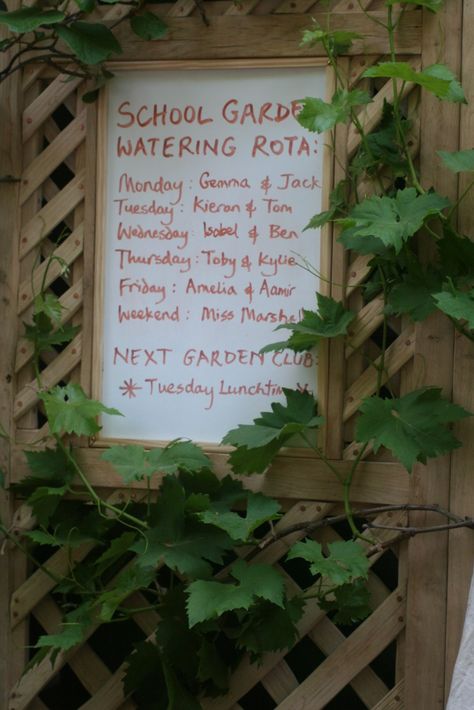 SCHOOL GARDE
WATERING ROTA:
Monday : Gemma & Jack
Tuesday : Kieron & Tom
Wednesday : Isobel & Ben
Thursday : Toby & Kylie
Friday : Amelia & Aamir
Weekend : Miss Marshall
NEXT GARDEN CLUB:
* Tuesday Lunchtime